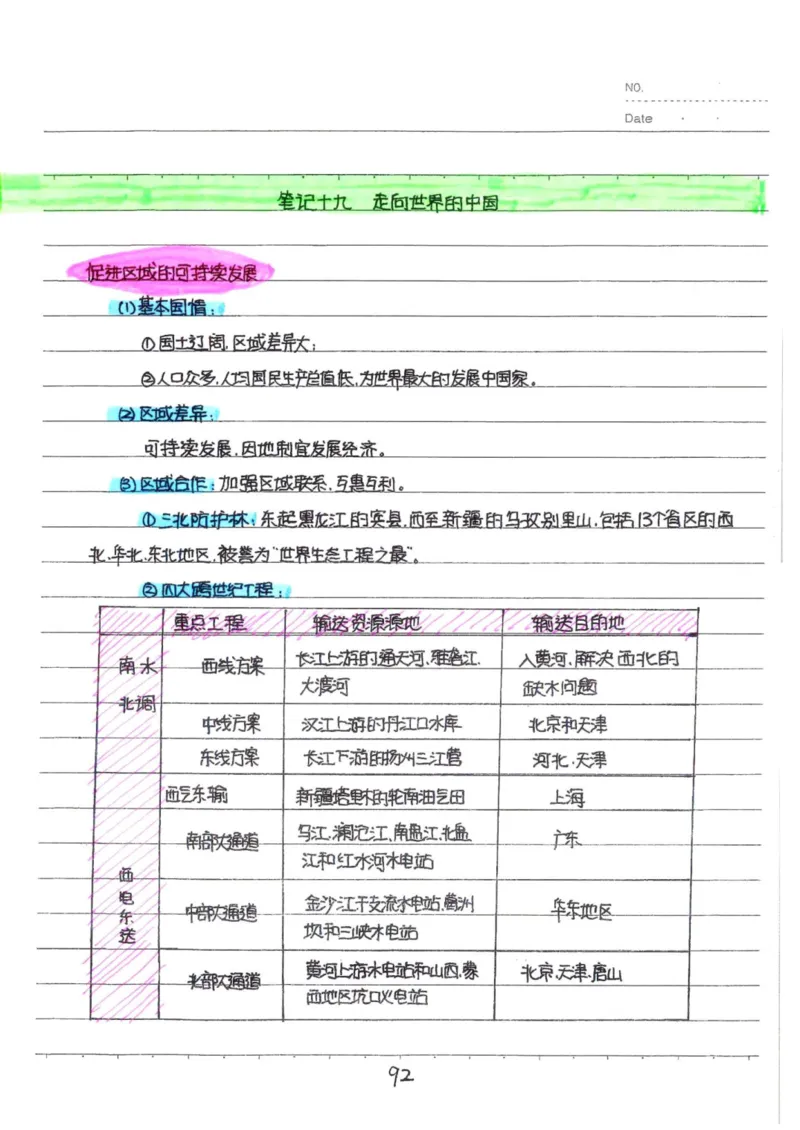 NO.
Date
笔记十九 走向世界的中国
促进区域的可持续发展
(1)基本国情:
①国土辽阔,区域差异大;
②人口众多,人均国民生产总值低,为世界最大的发展中国家。
(2)区域差异:
可持续发展,因地制宜发展经济。
(3)区域合作:加强区域联系,互惠互利。
①三北防护林:东起黑龙江的宾县,西至新疆的乌孜别里山,包括13个省区的西
北、华北、东北地区,被誉为“世界生态工程之最”。
②四大跨世纪工程:
重点工程 输送资源源地 输送目的地
南水北调 西线方案 长江上游的通天河、雅砻江、大渡河 入黄河,解决西北的缺水问题
中线方案 汉江上游的丹江口水库 北京和天津
东线方案 长江下游的扬州三江营 河北、天津
西气东输 新疆塔里木的轮南油气田 上海
西电东送 南部大通道 乌江、澜沧江、南盘江、北盘江和红水河水电站 广东
中部大通道 金沙江干支流水电站、葛洲坝和三峡水电站 华东地区
北部大通道 黄河上游水电站和山西、蒙西地区坑口火电站 北京、天津、唐山
92